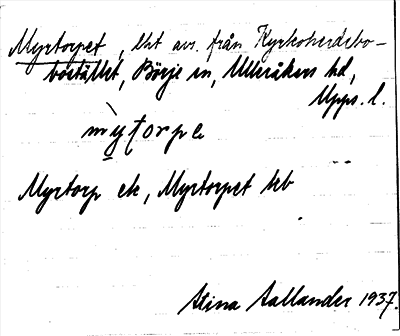 Myrtorpet, lht avs. från Kyrkoherdebo-
bostället, Börje sn, Ulleråkers hd,
Upps. l.
mỳtorpe
Myrtorp ek, Myrtorpet hb
Stina Sallander 1937.